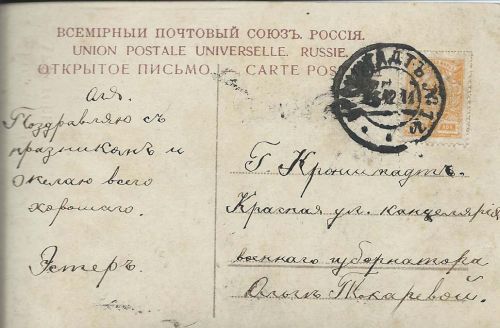 ВСЕМІРНЫЙ ПОЧТОВЫЙ СОЮЗЪ. РОССІЯ.
UNION POSTALE UNIVERSELLE. RUSSIE.
ОТКРЫТОЕ ПИСЬМО. CARTE POS
Оля.
Поздравляю съ
праздникомъ и
желаю всего
хорошаго.
Эстеръ.
Г. Кронштадтъ.
Красная ул. канцелярія
военнаго губернатора
Ольгѣ Токаревой.